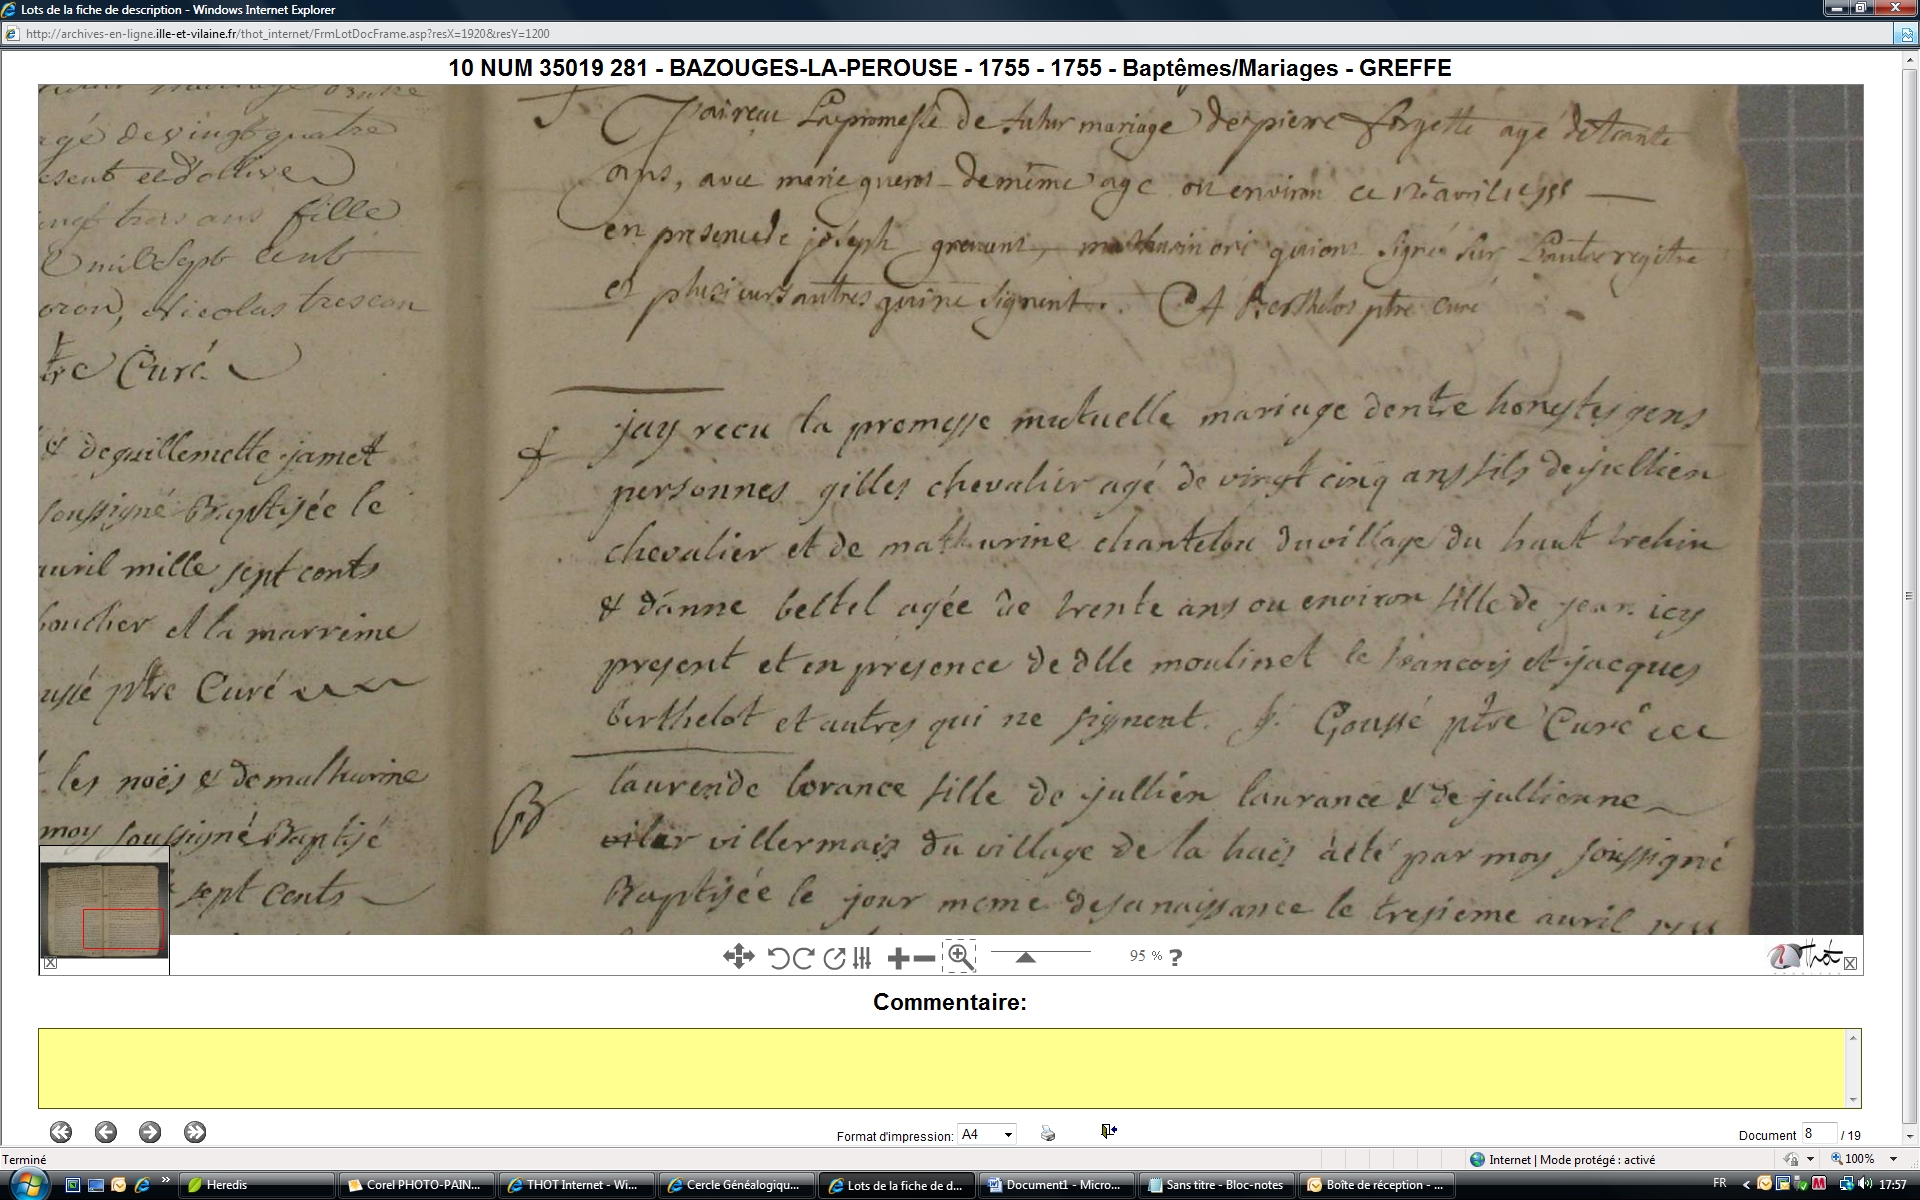 Lots de la fiche de description - Windows Internet Explorer
http://archives-en-ligne.ille-et-vilaine.fr/thot_internet/FrmLotDocFrame.asp?resX=1920&resY=1200
10 NUM 35019 281 - BAZOUGES-LA-PEROUSE - 1755 - 1755 - Baptêmes/Mariages - GREFFE
agé de vingt quatre
esent et d'ollive
ingt trois ans fille
mil Sept Cent
oron, Nicolas trescan
tre Curé.
& de guillemette jamet
soussigné Baptisée le
avril mille sept cents
boucher et la marreine
ussé ptre Curé
les noës & de mathurine
moy soussigné Baptisé
sept cents
J'ai reçu La promesse de futur mariage de pierre forgette agé de trante
ans, avec marie de même age ou environ ce avril 1755
en presence de joseph mathurin ori qui ont signé sur L'autre registre
et plusieurs autres qui ne signent. Berthelot ptre curé
jay recu la promesse mutuelle mariage dentre honestes gens
personnes gilles chevalier agé de vingt cinq ans fils de jullien
chevalier et de mathurine chantelou du village du haut trehin
& d'anne beltel agée de trente ans ou environ fille de jean icy
present et en presence de dlle moulinet le francois et jacques
berthelot et autres qui ne signent. J. Goussé ptre Curé
laurende lorance fille de jullien laurance & de jullienne
villermais du village de la haïs a été par moy soussigné
Baptisée le jour meme de sa naissance le tresieme avril 1755
95 % ?
Thot
Commentaire:
Format d'impression: A4
Document 8 / 19
Terminé
Internet | Mode protégé : activé
100%
Heredis
Corel PHOTO-PAIN...
THOT Internet - Wi...
Cercle Généalogiqu...
Lots de la fiche de d...
Document1 - Micro...
Sans titre - Bloc-notes
Boîte de réception - ...
FR
17:57